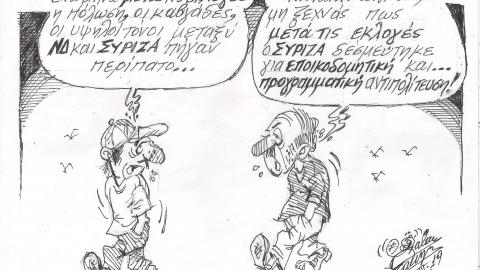 η πόλωση, οι καβγάδες,
οι υψηλοί τονοι μεταξύ
ΝΔ και ΣΥΡΙΖΑ πήγαν
περίπατο...
μη ξεχνάς πως
μετά τις εκλογές
ο ΣΥΡΙΖΑ δεσμεύτηκε
για εποικοδομητική και...
προγραμματική αντιπολίτευση!